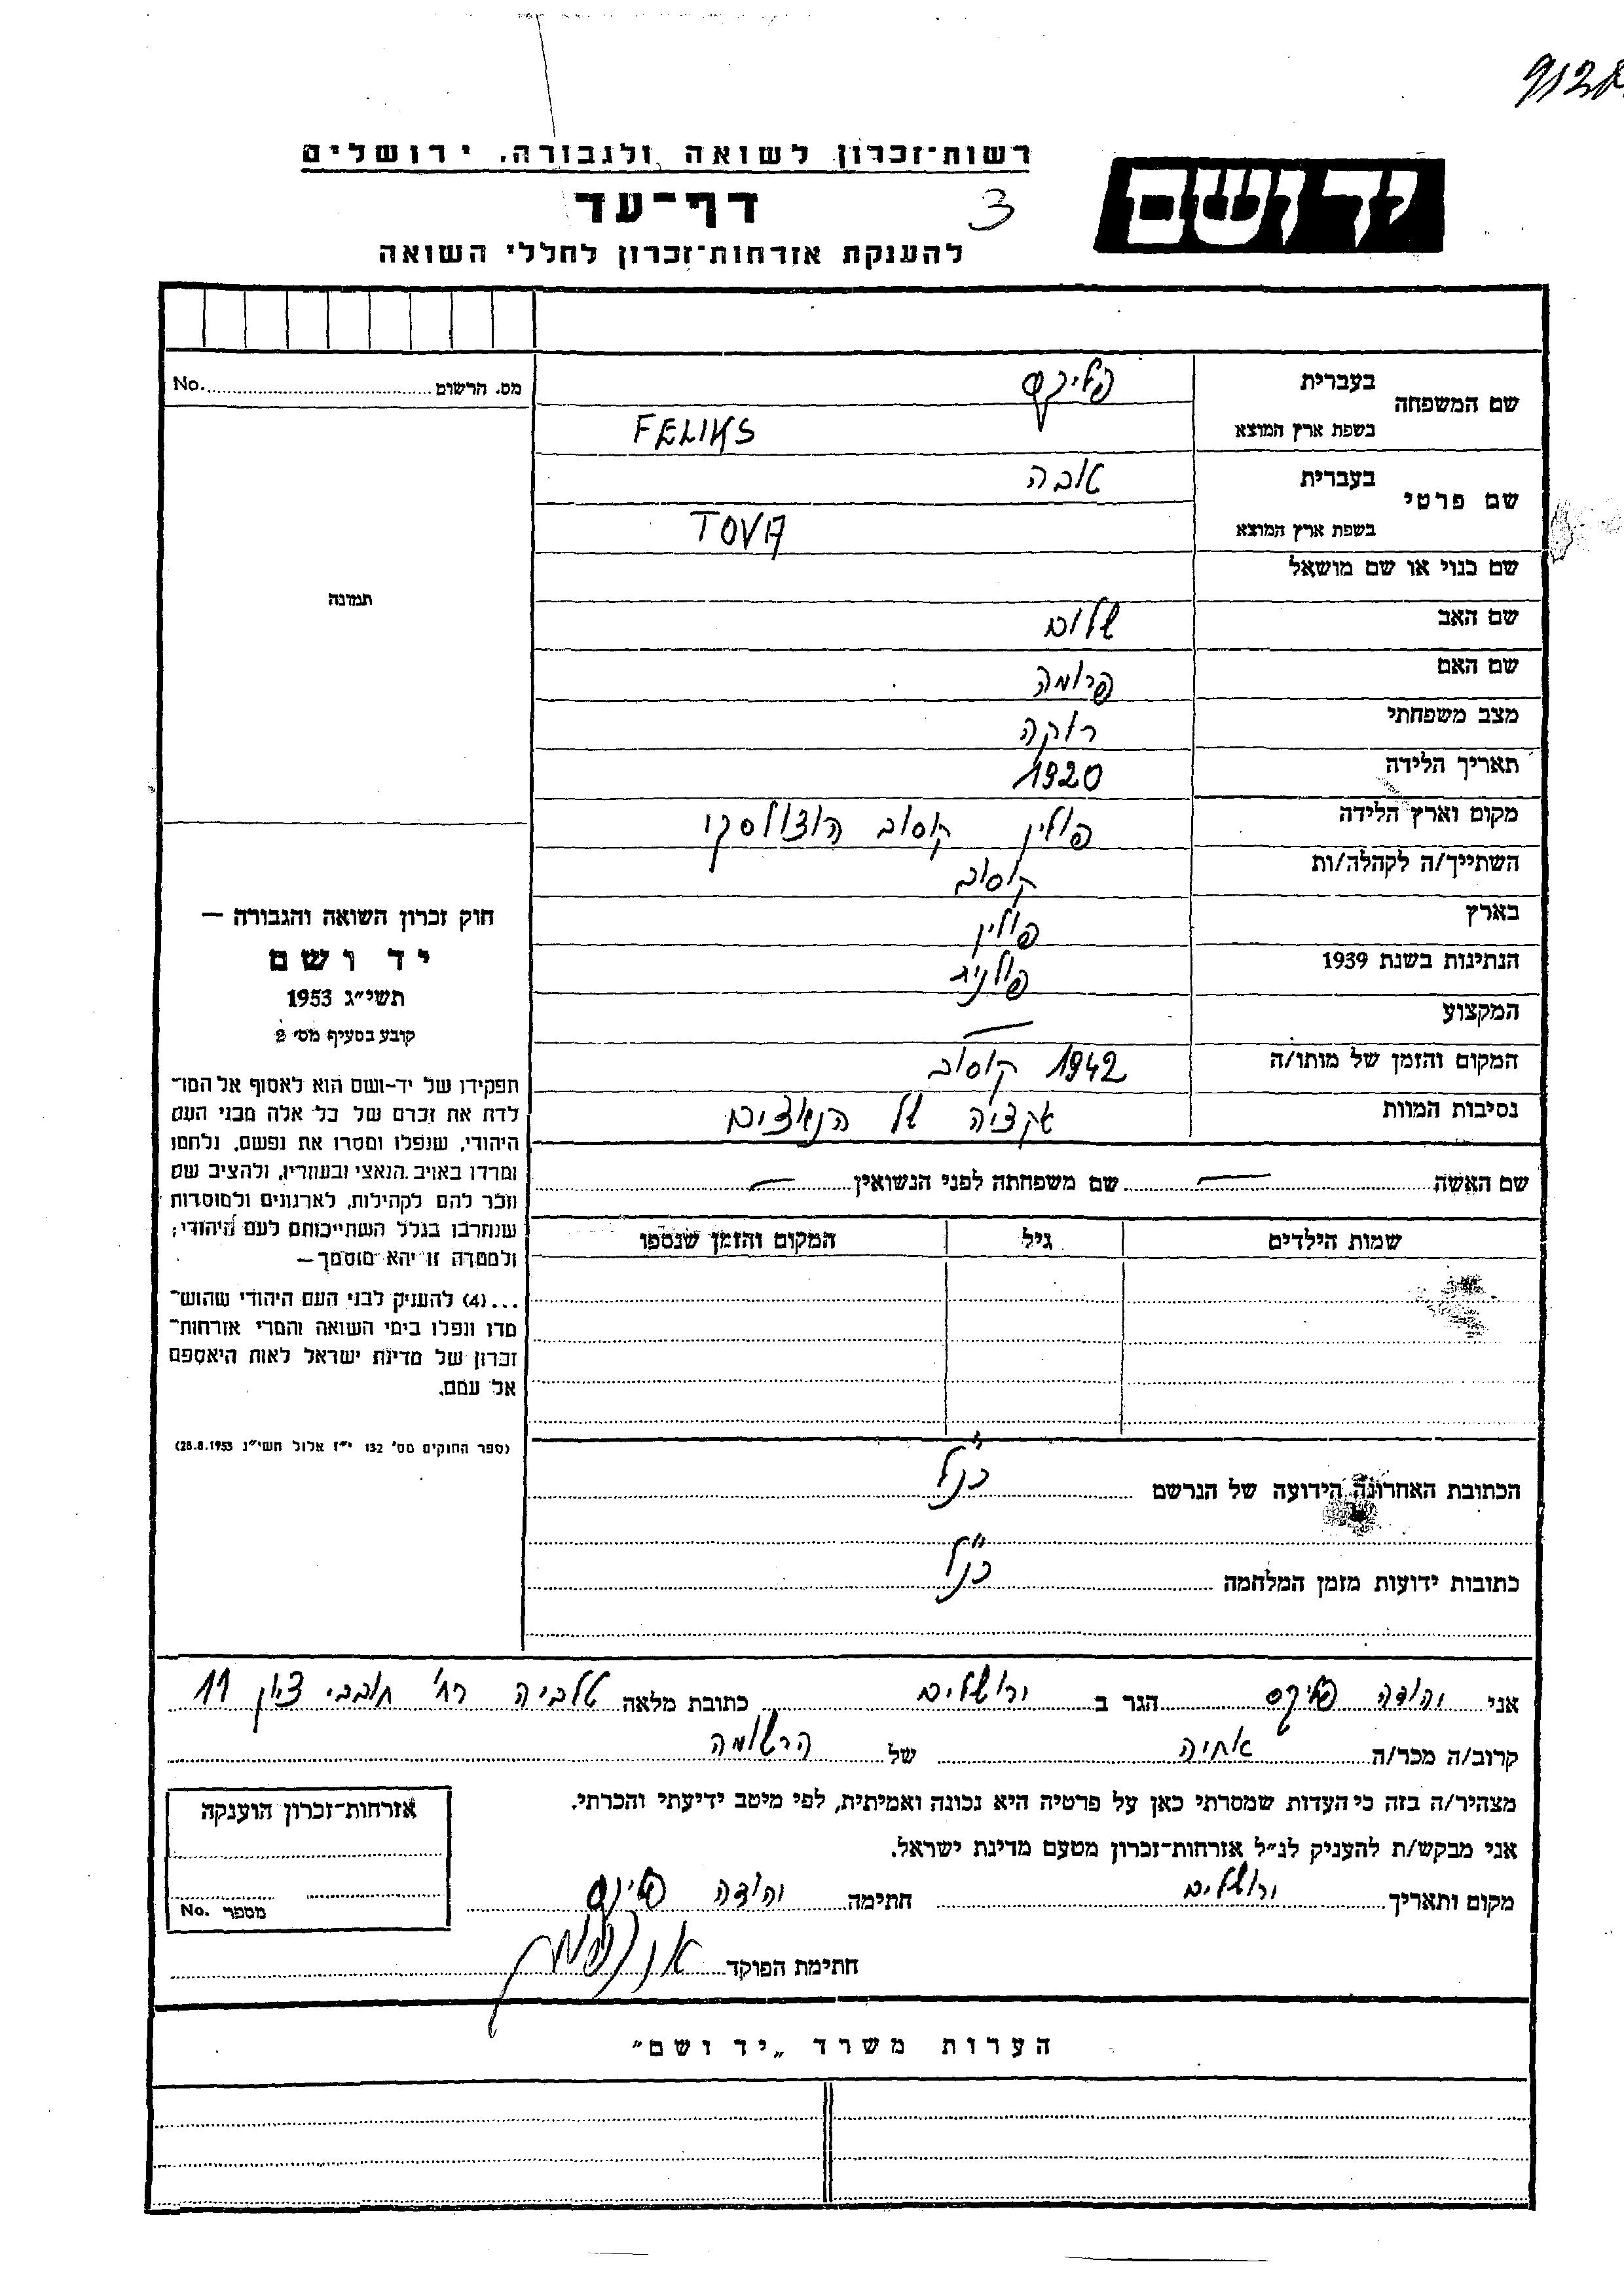 9128
רשות־זכרון לשואה ולגבורה, ירושלים
יד ושם
דף־עד
3
להענקת אזרחות־זכרון לחללי השואה
מס. הרשום No.
שם המשפחה בעברית פליקס
בשפת ארץ המוצא FELIKS
שם פרטי בעברית טובה
בשפת ארץ המוצא TOVA
שם כנוי או שם מושאל
שם האב שלום
שם האם פרומה
מצב משפחתי רווקה
תאריך הלידה 1920
מקום וארץ הלידה פולין קוסוב הוצולסקי
השתייך/ה לקהלה/ות קוסוב
בארץ פולין
הנתינות בשנת 1939 פולנית
המקצוע —
המקום והזמן של מותו/ה 1942 קוסוב
נסיבות המוות אקציה של הנאצים
תמונה
חוק זכרון השואה והגבורה —
יד ושם
תשי״ג 1953
קובע בסעיף מס׳ 2
תפקידו של יד־ושם הוא לאסוף אל המו־
לדת את זכרם של כל אלה מבני העם
היהודי, שנפלו ומסרו את נפשם, נלחמו
ומרדו באויב הנאצי ובעוזריו, ולהציב שם
וזכר להם לקהילות, לארגונים ולמוסדות
שנחרבו בגלל השתייכותם לעם היהודי;
ולמטרה זו יהא מוסמך —
...(4) להעניק לבני העם היהודי שהוש־
מדו ונפלו בימי השואה והמרי אזרחות־
זכרון של מדינת ישראל לאות היאספם
אל עמם.
(ספר החוקים מס׳ 132 י״ז אלול תשי״ג 28.8.1953)
שם האשה — שם משפחתה לפני הנשואין —
שמות הילדים גיל המקום והזמן שנספו
הכתובת האחרונה הידועה של הנרשם כנ״ל
כתובות ידועות מזמן המלחמה כנ״ל
אני יהודה פליקס הגר ב ירושלים כתובת מלאה טלביה רח׳ חובבי ציון 11
קרוב/ה מכר/ה אחיה של הרשומה
מצהיר/ה בזה כי העדות שמסרתי כאן על פרטיה היא נכונה ואמיתית, לפי מיטב ידיעתי והכרתי.
אני מבקש/ת להעניק לנ״ל אזרחות־זכרון מטעם מדינת ישראל.
מקום ותאריך ירושלים חתימה יהודה פליקס
חתימת הפוקד
אזרחות־זכרון הוענקה
מספר No.
הערות משרד „יד ושם״